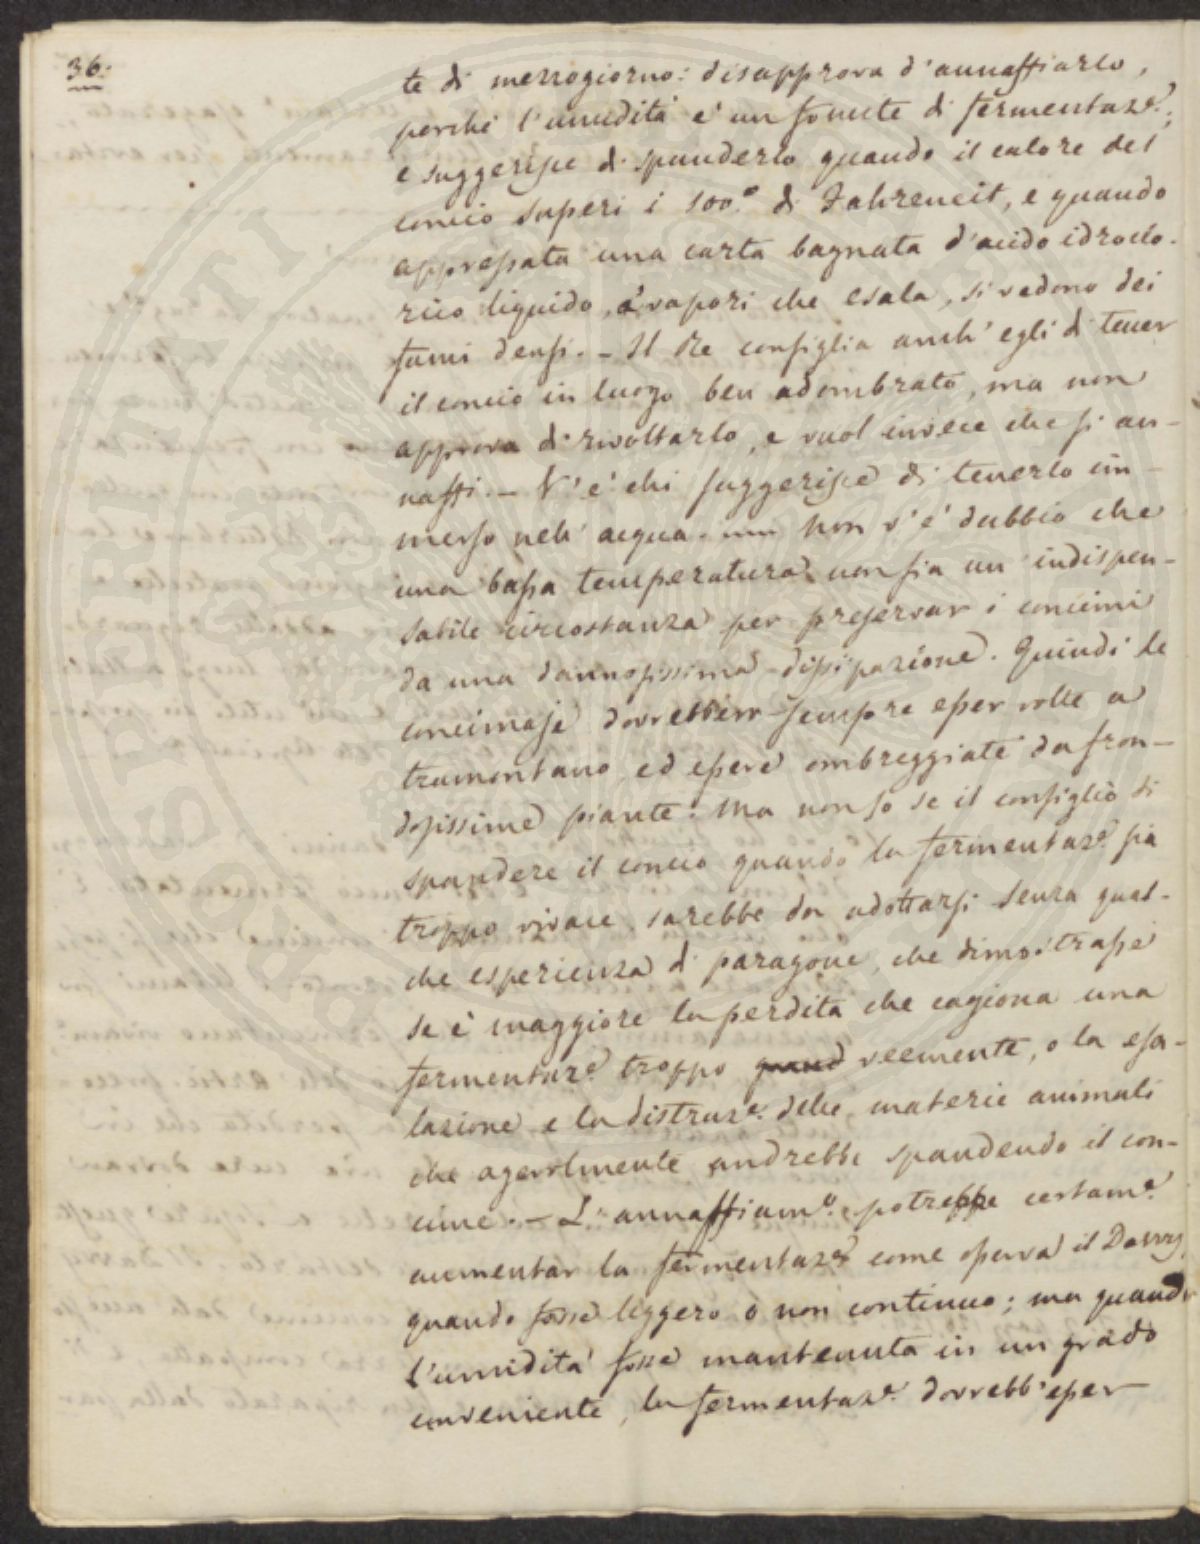 36.
te di mezzogiorno: disapprova d'annaffiarlo,
perché l'umidità è un fomite di fermentaz.e;
e suggerisce di spanderlo quando il calore del
concio superi i 100.° di Fahreneit, e quando
appressata una carta bagnata d'acido idroclo-
rico liquido, a' vapori che esala, si vedono dei
fumi densi. - Il Re consiglia anch'egli di tener
il concio in luogo ben adombrato, ma non
approva di rivoltarlo, e vuol invece che si an-
naffi. - V'è chi suggerisce di tenerlo im-
merso nell'acqua. Non v'è dubbio che
una bassa temperatura non sia un indispen-
sabile circostanza per preservar i concimi
da una dannosissima dissipazione. Quindi le
concimaje dovrebber sempre esser volte a
tramontano, ed essere ombreggiate da fron-
dosissime piante. Ma non so se il consiglio di
spandere il concio quando la fermentaz.e sia
troppo vivace, sarebbe da adottarsi senza qual-
che esperienza di paragone, che dimostrasse
se è maggiore la perdita che cagiona una
fermentaz.e troppo veemente, o la esa-
lazione e la distruz.e delle materie animali
che agevolmente andrebbe spandendo il con-
cime. - L'annaffiam.o potrebbe certam.e
aumentar la fermentaz.e come osserva il Davvy,
quando fosse leggero o non continuo; ma quando
l'umidità fosse mantenuta in un grado
conveniente, la fermentaz.e dovrebb'esser
PROSPERITATI